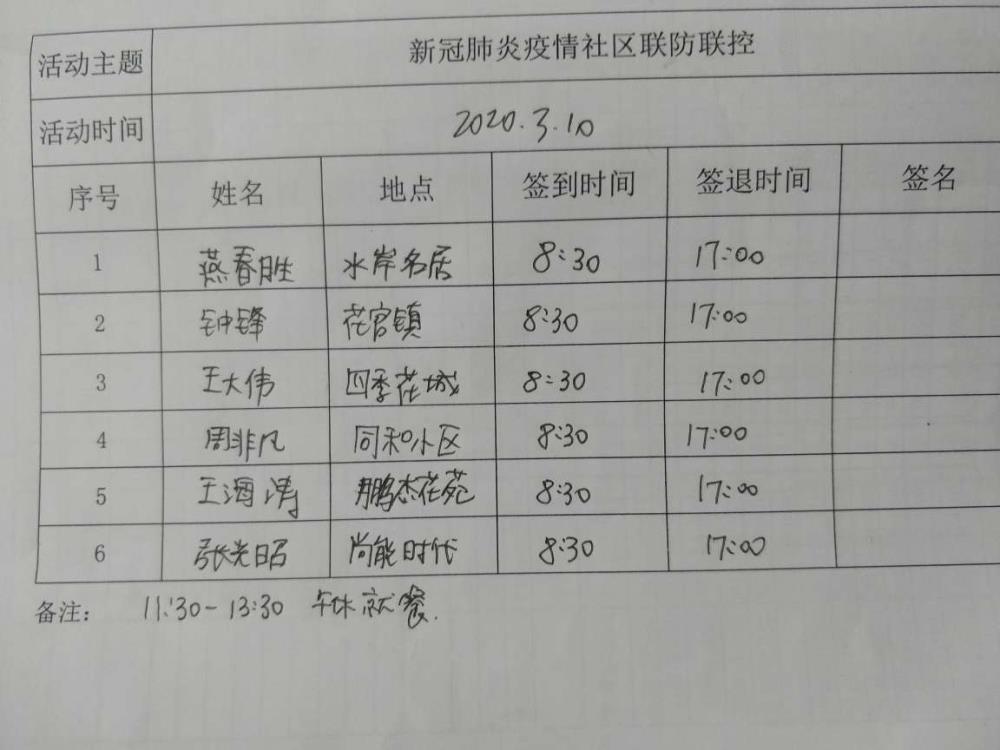 活动主题 新冠肺炎疫情社区联防联控
活动时间 2020.3.10
序号 姓名 地点 签到时间 签退时间 签名
1 燕春胜 水岸名居 8:30 17:00
2 钟锋 花官镇 8:30 17:00
3 王大伟 四季花城 8:30 17:00
4 周非凡 同和小区 8:30 17:00
5 王海涛 鹏杰花苑 8:30 17:00
6 张光昭 尚能时代 8:30 17:00
备注: 11:30-13:30 午休就餐.